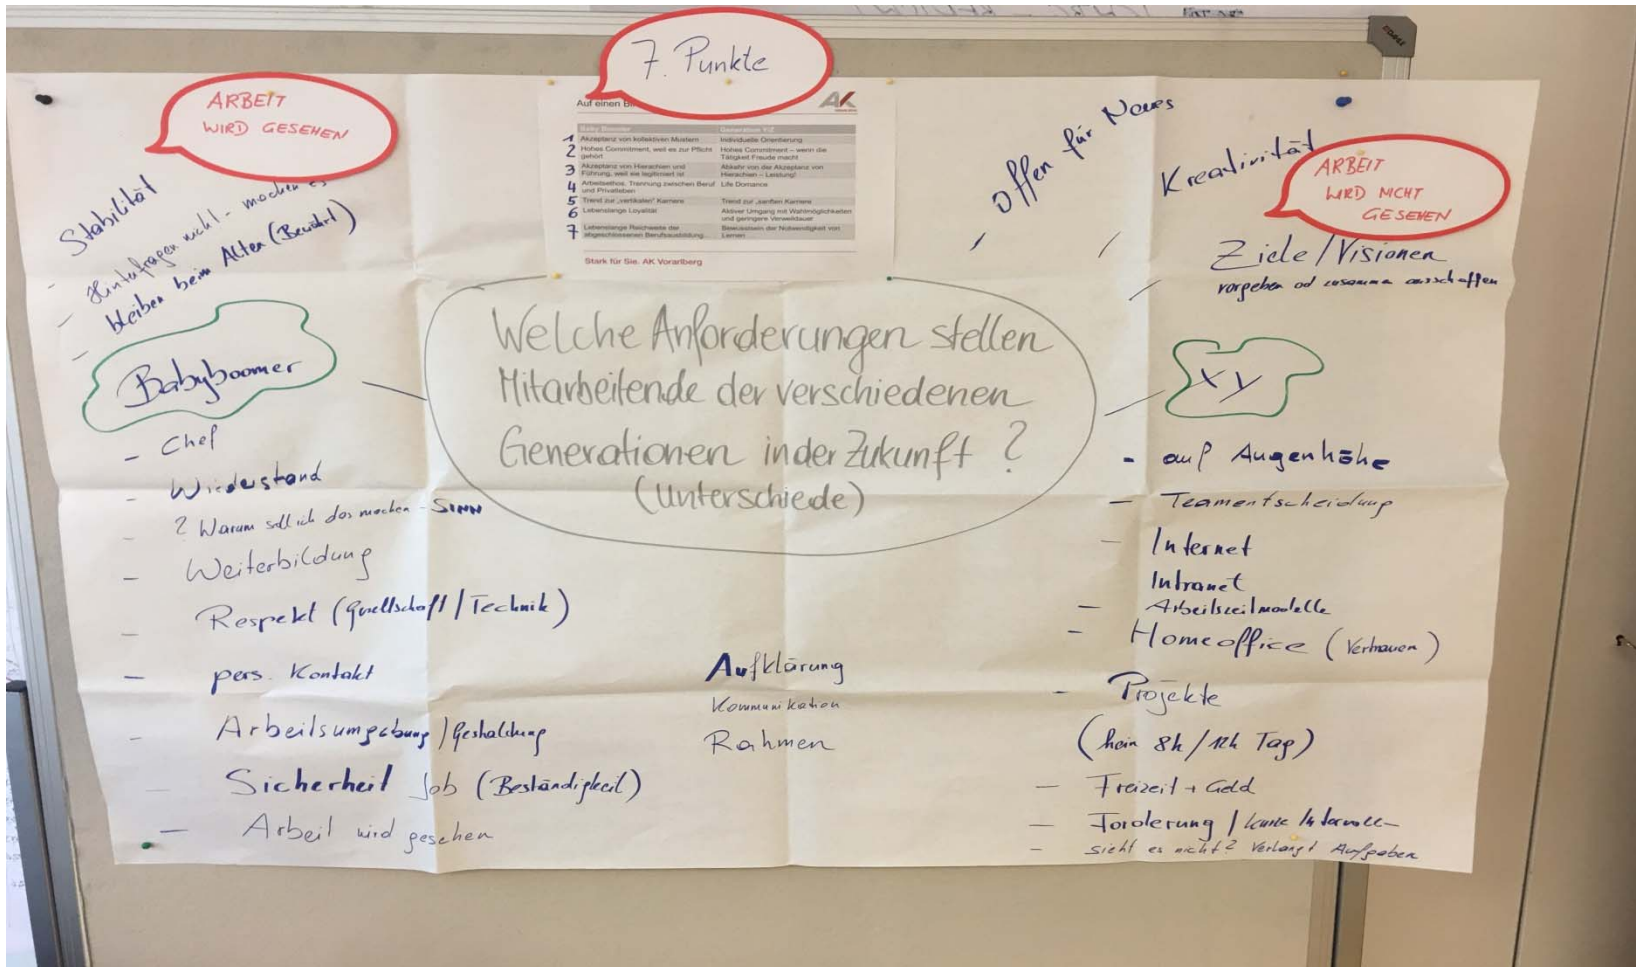 7. Punkte
ARBEIT
WIRD GESEHEN
Auf einen
AK
Baby Boomer Generation Y/Z
1 Akzeptanz von kollektiven Mustern Individuelle Orientierung
2 Hohes Commitment, weil es zur Pflicht gehört Hohes Commitment – wenn die Tätigkeit Freude macht
3 Akzeptanz von Hierachien und Führung, weil sie legitimiert ist Abkehr von der Akzeptanz von Hierachien – Leistung!
4 Arbeitsethos, Trennung zwischen Beruf und Privatleben Life Domance
5 Trend zur „vertikalen" Karriere Trend zur „sanften Karriere
6 Lebenslange Loyalität Aktiver Umgang mit Wahlmöglichkeiten und geringere Verweildauer
7 Lebenslange Reichweite der abgeschlossenen Berufsausbildung... Bewusstsein der Notwendigkeit von Lernen
Stark für Sie. AK Vorarlberg
Stabilität
- Hinterfragen nicht - machen es
- bleiben beim Alten (Bewährt)
Babyboomer
- Chef
- Wiederstand
- ? Warum soll ich das machen - SINN
- Weiterbildung
- Respekt (Gesellschaft / Technik)
- pers. Kontakt
- Arbeitsumgebung / Gestaltung
- Sicherheit Job (Beständigkeit)
- Arbeit wird gesehen
Welche Anforderungen stellen
Mitarbeitende der verschiedenen
Generationen in der Zukunft ?
(Unterschiede)
Aufklärung
Kommunikation
Rahmen
offen für Neues
Kreativität
ARBEIT
WIRD NICHT
GESEHEN
Ziele / Visionen
vorgeben od zusamma ausschaffen
XY
- auf Augenhöhe
- Teamentscheidung
- Internet
Intranet
- Arbeitszeitmodelle
- Homeoffice (Vertrauen)
- Projekte
(kein 8h / 12h Tag)
- Freizeit + Geld
- Forderung / kurze Intervalle
- sieht es nicht? Verlangt Aufgaben